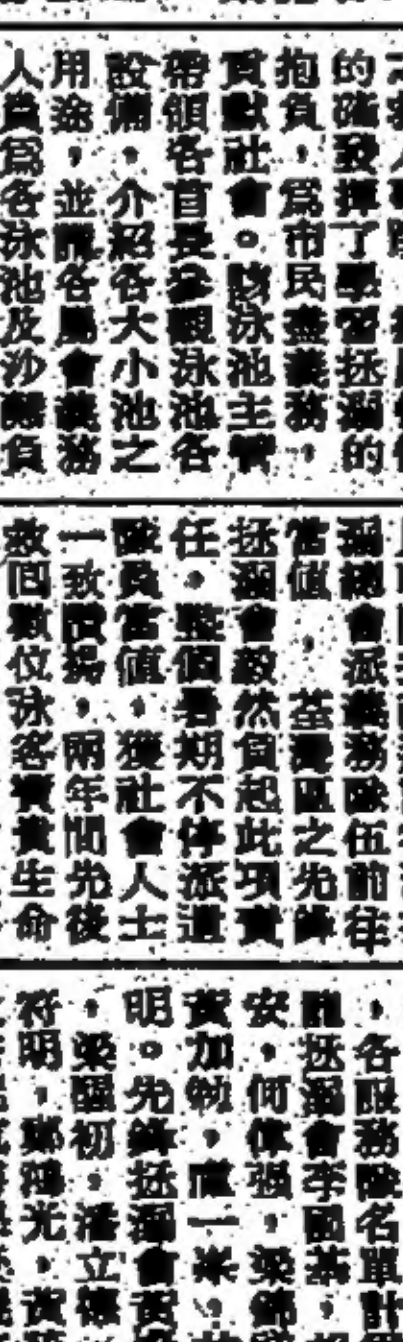 的確發揮了學習拯溺的
抱負，為市民盡義務，
貢獻社會。該泳池主管
帶領各首長參觀泳池各
設備，介紹各大小池之
用途，並讚各屬會義務
人員為各泳池及沙灘負
溺總會派義務隊伍前往
當值，荃灣區之先鋒
拯溺會毅然負起此項責
任。整個暑期不停派遣
隊員當值，獲社會人士
一致讚揚，兩年間先後
救回數位泳客寶貴生命
，各服務隊名單計
拯溺會李國基，
安，何偉強，梁錦
黃加勉，一米
明。先鋒拯溺會黃
，梁醒初，潘立
符明，鄭錦光，黃